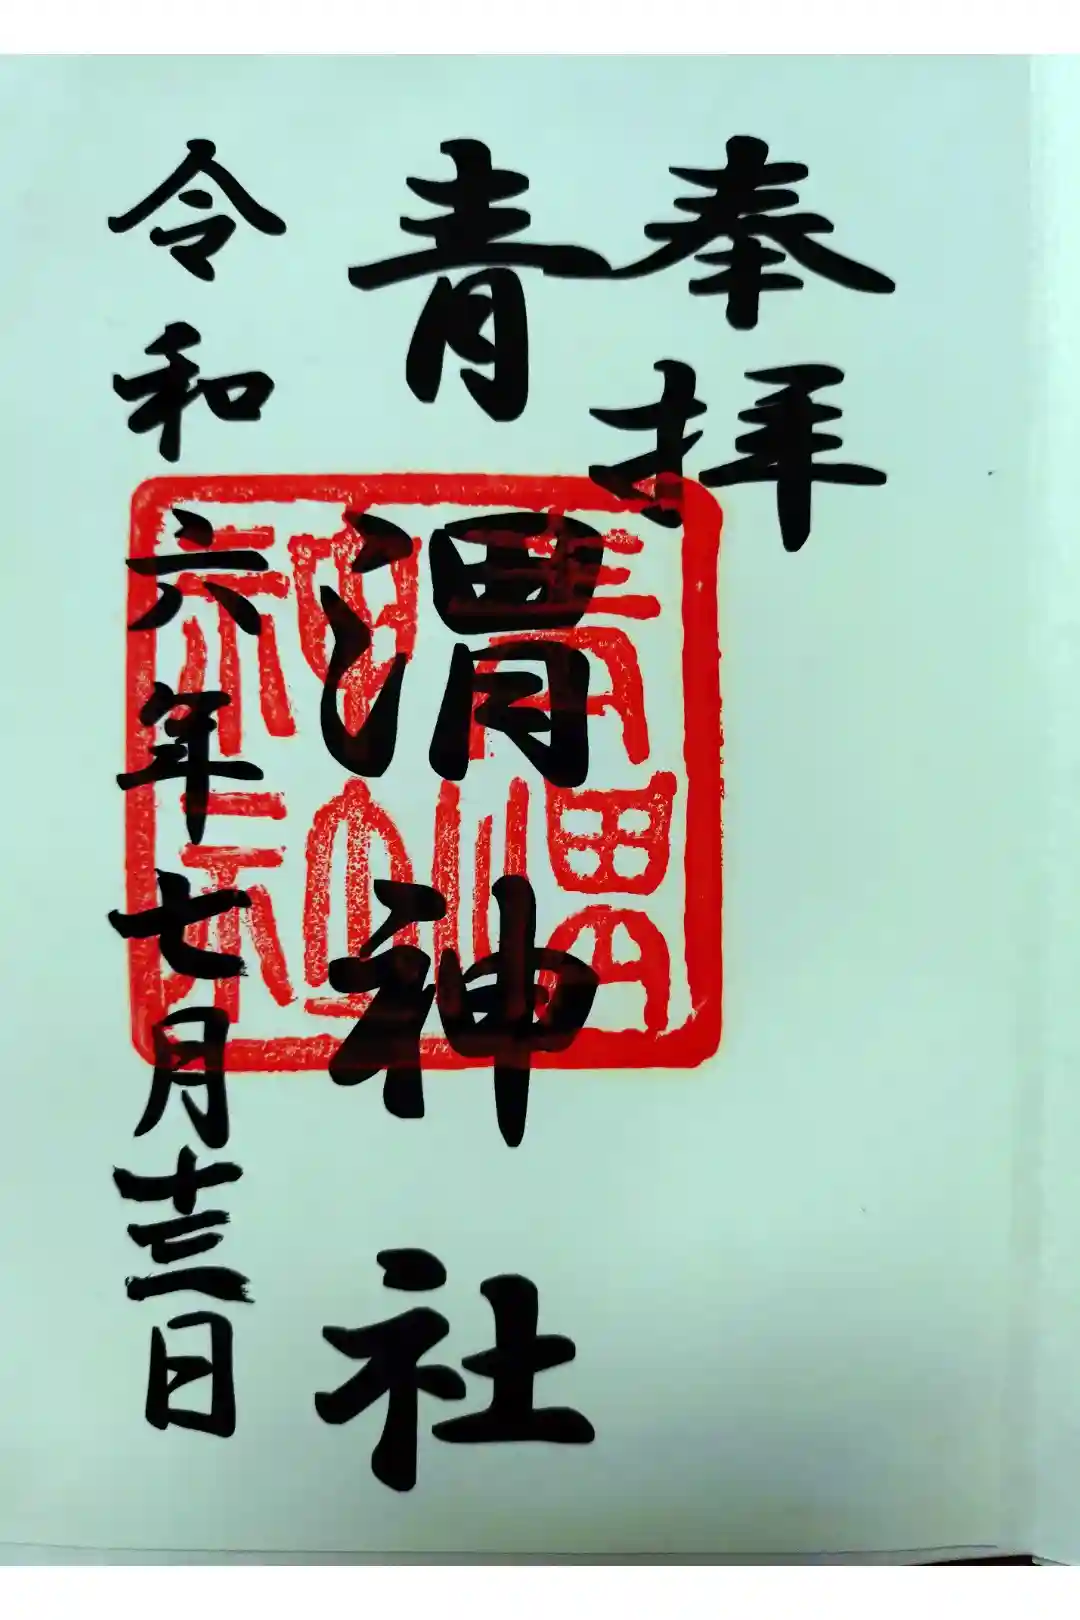 奉拝
青渭神社
令和六年七月十三日
青渭神社